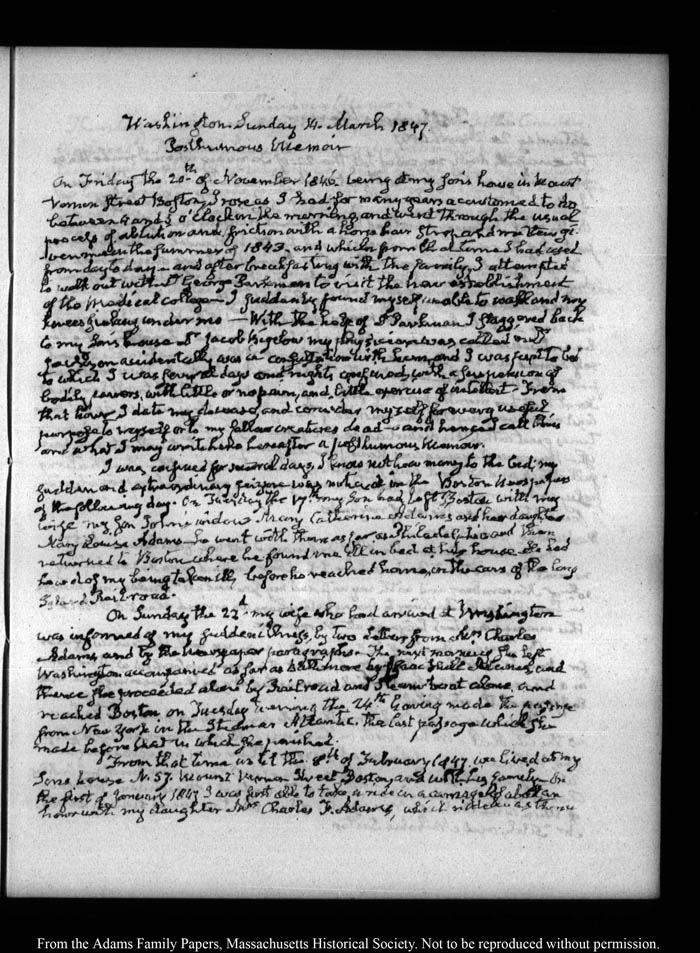 Washington Sunday 14. March 1847.
Posthumous Memoir
On Friday the 20th of November 1846 being at my Son's house in Mount
Vernon Street Boston, I rose as I had for many years accustomed to do
between 4 and 5 o'clock in the morning, and went through the usual
process of ablution and friction with a horse hair strap and mitten gi-
ven me in the summer of 1843. and which from that time I had used
from day to day— and after breakfasting with the family, I attempted
to walk out with Dr George Parkman to visit the new establishment
of the Medical college— I suddenly found myself unable to walk and my
knees sinking under me — With the help of Dr Parkman I staggered back
to my Sons house Dr Jacob Bigelow my physician was called and Dr
Jackson accidentally was in consultation with him, and I was put to bed
to which I was several days and nights confined, with a suspension of
bodily powers, with little or no pain, and little exercise of intellect. From
that hour I date my decease, and consider myself for every useful
purpose to myself or to my fellow creatures dead— and hence I call this
and what I may write here hereafter a posthumous Memoir.
I was confined for several days, I know not how many to the bed; my
sudden and extraordinary seizure was noticed in the Boston Newspapers
of the following day. On Tuesday the 17th my Son had left Boston with my
wife my Son John's widow Mary Catherine Adams and her daughter
Mary Louisa Adams he went with them as far as Philadelphia and then
returned to Boston where he found me ill in bed at his house He had
heard of my being taken ill, before he reached home, in the cars of the Long
Island Rail road.
On Sunday the 22d my wife who had arrived at Washington
was informed of my sudden illness, by two letters from Mrs Charles
Adams and by the newspaper paragraphs. The next morning, she left
Washington accompanied as far as Baltimore by Isaac Hull Adams, and
thence she proceeded alone by Rail road and Steam boat alone, and
reached Boston on Tuesday evening the 24th having made the passage
from New York in the Steamer Atlantic, the last passage which she
made before that in which she perished.
From that time until the 8th of February 1847 we lived at my
Sons house N. 57. Mount Vernon Street, Boston, and with his family— On
the first of January 1847 I was first able to take a ride in a carriage of about an
hour with my daughter Mrs Charles F. Adams, which ride was